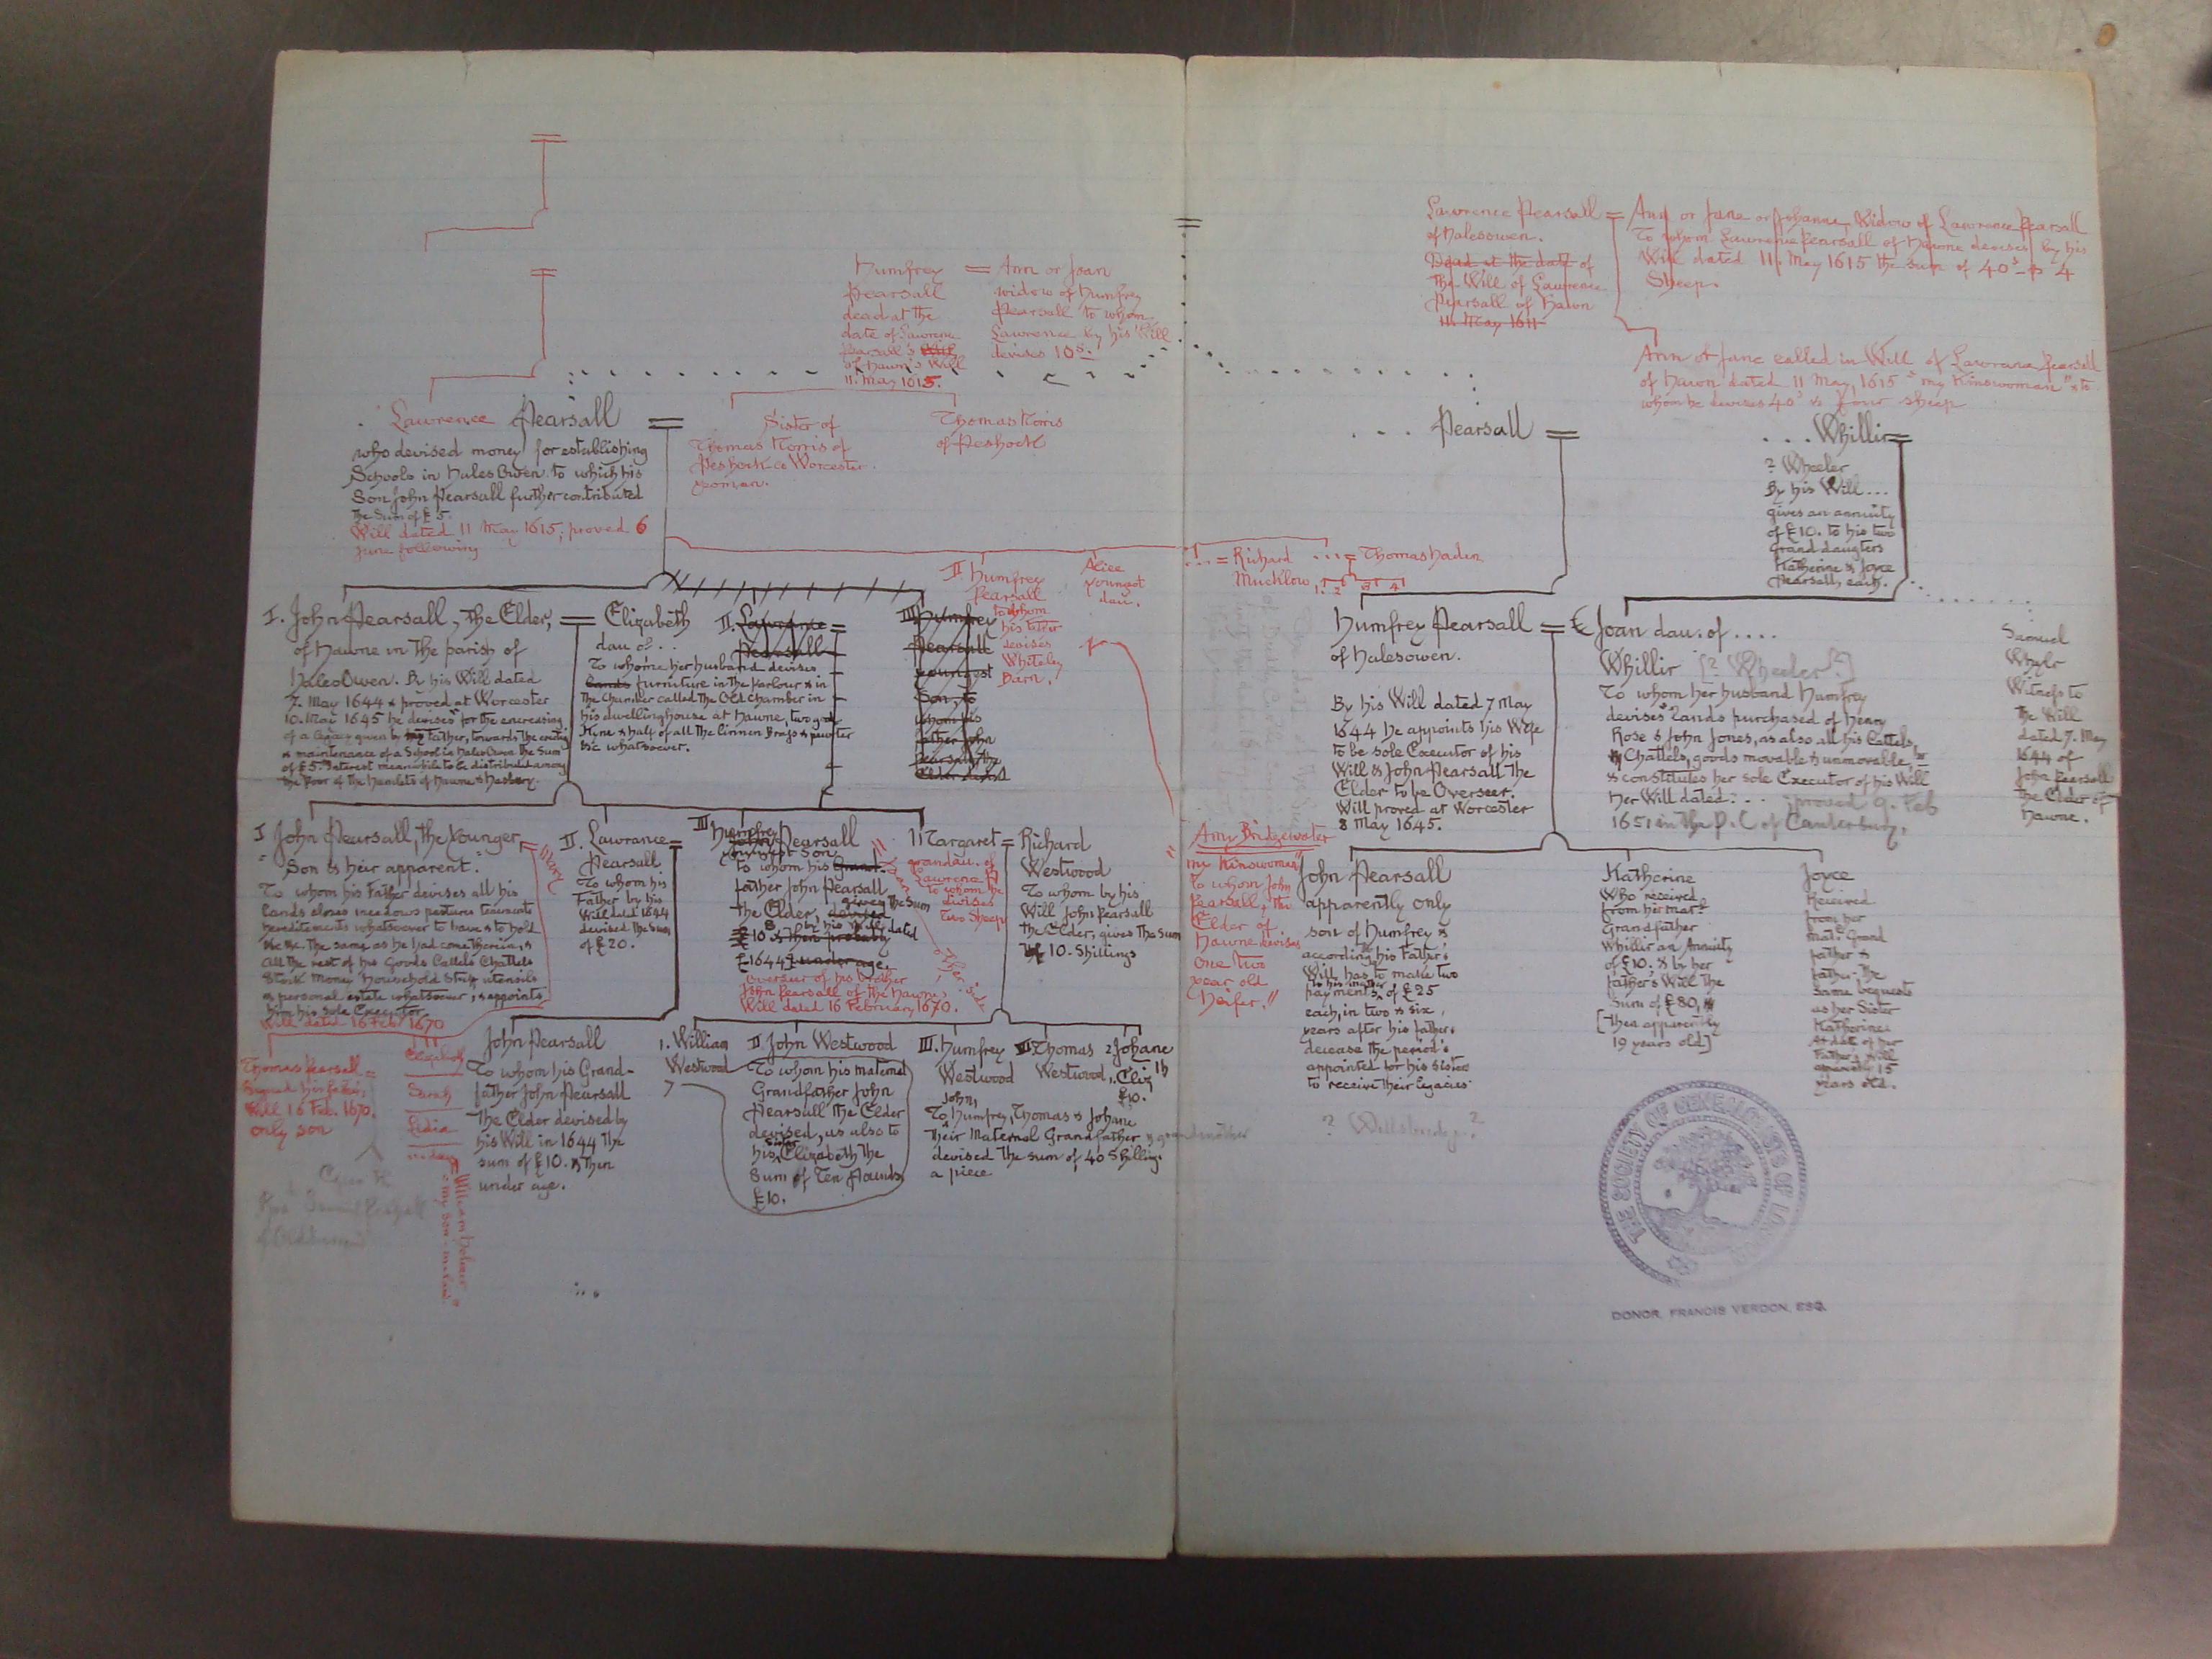 Humfrey
Pearsall
dead at the
date of Lawrence
Pearsall's Will
of Hawn's Will
11. May 1615.
= Ann or Joan
widow of Humfrey
Pearsall to whom
Lawrence by his Will
devises 10s.
Lawrence Pearsall =
of Halesowen.
Dead at the date of
the Will of Lawrence
Pearsall of Hawn
11. May 1611
Ann or Jane or Johanne, Widow of Lawrence Pearsall
To whom Lawrence Pearsall of Hawne devises by his
Will dated 11 May 1615 the sum of 40s & 4
Sheep.
Ann or Jane called in Will of Lawrence Pearsall
of Hawn dated 11 May, 1615 "my Kinswoman" & to
whom he devises 40s & four sheep
Lawrence Pearsall =
who devised money for establishing
Schools in Hales Owen to which his
Son John Pearsall further contributed
the Sum of £5.
Will dated 11 May 1615; proved 6
June following
Sister of
Thomas Norris of
Peshock co Worcester.
yeoman.
Thomas Norris
of Peshock
. . . Pearsall =
. . . Whillir =
? Wheeler
By his Will...
gives an annuity
of £10. to his two
Grand daugters
Katherine & Joyce
Pearsall, each.
II Humfrey
Pearsall
to whom
his father
devises
Whiteley
Barn.
Alice
youngest
dau.
... = Richard
Mucklow
... = Thomas Haden
1. 2 3 4
I. John Pearsall, the Elder, =
of Hawne in the parish of
Hales Owen. By his Will dated
7. May 1644 & proved at Worcester
10. May 1645 he devises for the encreasing
of a legacy given by my Father, towards the erecting
& maintenance of a School in Hales Owen the Sum
of £5. Interest meanwhile to be distributed among
the Poor of the Hamlets of Hawne & Hasbury.
Elizabeth
dau of . .
To whome her husband devises
lands furniture in the Parlour & in
the Chamber called the Old Chamber in
his dwellinghouse at Hawne, two good
Kyne & half of all the Linnen Brass & pewter
&c whatsoever.
II. Lawrance =
Pearsall
III Humfrey
Pearsall
youngest
Son, to
whom his
father John
Pearsall the
Elder devised
Humfrey Pearsall =
of Halesowen.
By his Will dated 7 May
1644 he appoints his Wife
to be sole Executor of his
Will & John Pearsall The
Elder to be Overseer.
Will proved at Worcester
8 May 1645.
Joan dau. of ....
Whillir [? Wheeler?]
To whom her husband Humfrey
devises lands purchased of Henry
Rose & John Jones, as also all his Cattels,
& Chattels, goods movable & unmovable,
& constitutes her sole Executor of his Will
Her Will dated: . . proved 9. Feb
1651 in the P. C of Canterbury,
Samuel
Whyle
Witness to
the Will
dated 7. May
1644 of
John Pearsall
the Elder of
Hawne.
I John Pearsall, the Younger =
"Son & heir apparent".
To whom his Father devises all his
lands closes meadows pastures tenements
hereditements whatsoever to have & to hold
the same as he had come therein, &
all the rest of his Goods Cattels Chattels
Stock Money Household Stuff utensils
& personal estate whatsoever, & appoints
him his sole Executor
Will dated 16 Feb 1670
Mary
II. Lawrance =
Pearsall
To whom his
Father by his
Will dated 1644
devised the Sum
of £20.
III Humfrey
John Pearsall
youngest Son
to whom his Grand-
father John Pearsall
the Elder, devised given the Sum
£10 & then probably by his Will dated
1644 & under age.
overseer of his brother
John Pearsall of the Hawne,
Will dated 16 February 1670.
1 Margaret =
grandau. of
Lawrence P
to whom he
devises
Two Sheep
Richard
Westwood
To whom by his
Will John Pearsall
the Elder, gives the Sum
of 10. Shillings
Amy Bridgewater
"my Kinswoman"
to whom John
Pearsall, the
Elder of
Hawne devises
one two
year old
Heifer."
John Pearsall
apparently only
son of Humfrey &
according his Father's
Will has to make two
payments to his mother of £25
each, in two & six
years after his fathers
decease the period's
appointed for his Sisters
to receive their legacies.
Katherine
Who received
from her mat.
Grandfather
Whillir an Annuity
of £10. & by her
father's Will the
Sum of £80,
[Then apparently
19 years old]
Joyce
Received
from her
mat. Grand
father &
father the
same bequests
as her Sister
Katherine.
At date of her
Father's Will
apparently 15
years old.
Thomas Pearsall =
Signed his father's
Will 16 Feb. 1670.
only son
Elizabeth
Sarah
Lidia
William
"my son-in-law."
John Pearsall
To whom his Grand-
father John Pearsall
the Elder devised by
his Will in 1644 the
sum of £10. & then
under age.
1. William
Westwood
II. John Westwood
To whom his maternal
Grandfather John
Pearsall the Elder
devised, as also to
his sister Elizabeth the
Sum of Ten Pounds
£10.
III. Humfrey
Westwood
Thomas
Westwood
2 Johane
1. Elizth
£10.
To John, Humfrey, Thomas & Johane
their Maternal Grandfather & grandmother
devised the sum of 40 Shillings
a piece
THE SOCIETY OF GENEALOGISTS OF LONDON
DONOR, FRANCIS VERDON, ESQ.